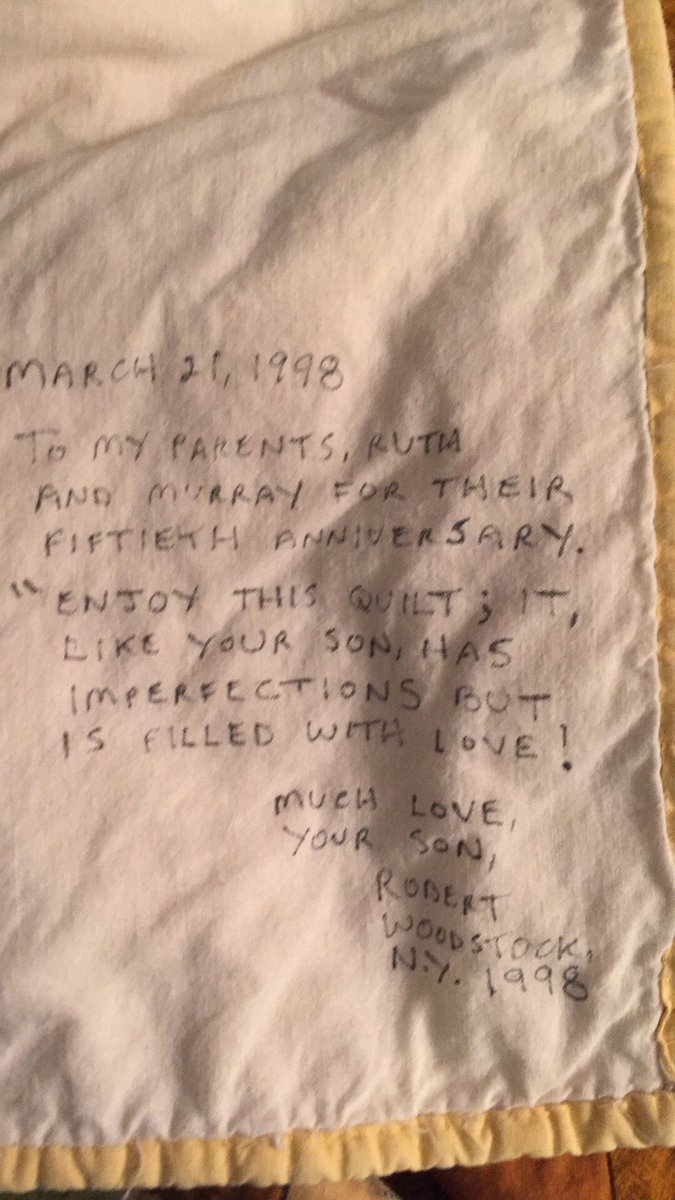 MARCH 21, 1998
TO MY PARENTS, RUTH
AND MURRAY FOR THEIR
FIFTIETH ANNIVERSARY.
"ENJOY THIS QUILT; IT,
LIKE YOUR SON, HAS
IMPERFECTIONS BUT
IS FILLED WITH LOVE!
MUCH LOVE,
YOUR SON,
ROBERT
WOODSTOCK,
N.Y. 1998